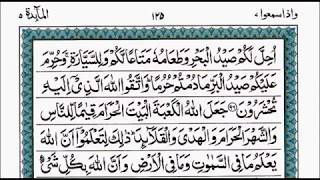 المآئدة ٥ ١٢٥ واذا سمعوا ٧
اُحِلَّ لَكُمْ صَيْدُ الْبَحْرِ وَطَعَامُهٗ مَتَاعًا لَّكُمْ وَلِلسَّيَّارَةِ ۚ وَحُرِّمَ
عَلَيْكُمْ صَيْدُ الْبَرِّ مَا دُمْتُمْ حُرُمًا ؕ وَاتَّقُوا اللّٰهَ الَّذِيْٓ اِلَيْهِ
تُحْشَرُوْنَ ﴿٩٦﴾ جَعَلَ اللّٰهُ الْكَعْبَةَ الْبَيْتَ الْحَرَامَ قِيٰمًا لِّلنَّاسِ
وَالشَّهْرَ الْحَرَامَ وَالْهَدْيَ وَالْقَلَآئِدَ ؕ ذٰلِكَ لِتَعْلَمُوْٓا اَنَّ اللّٰهَ
يَعْلَمُ مَا فِي السَّمٰوٰتِ وَمَا فِي الْاَرْضِ وَاَنَّ اللّٰهَ بِكُلِّ شَيْءٍ